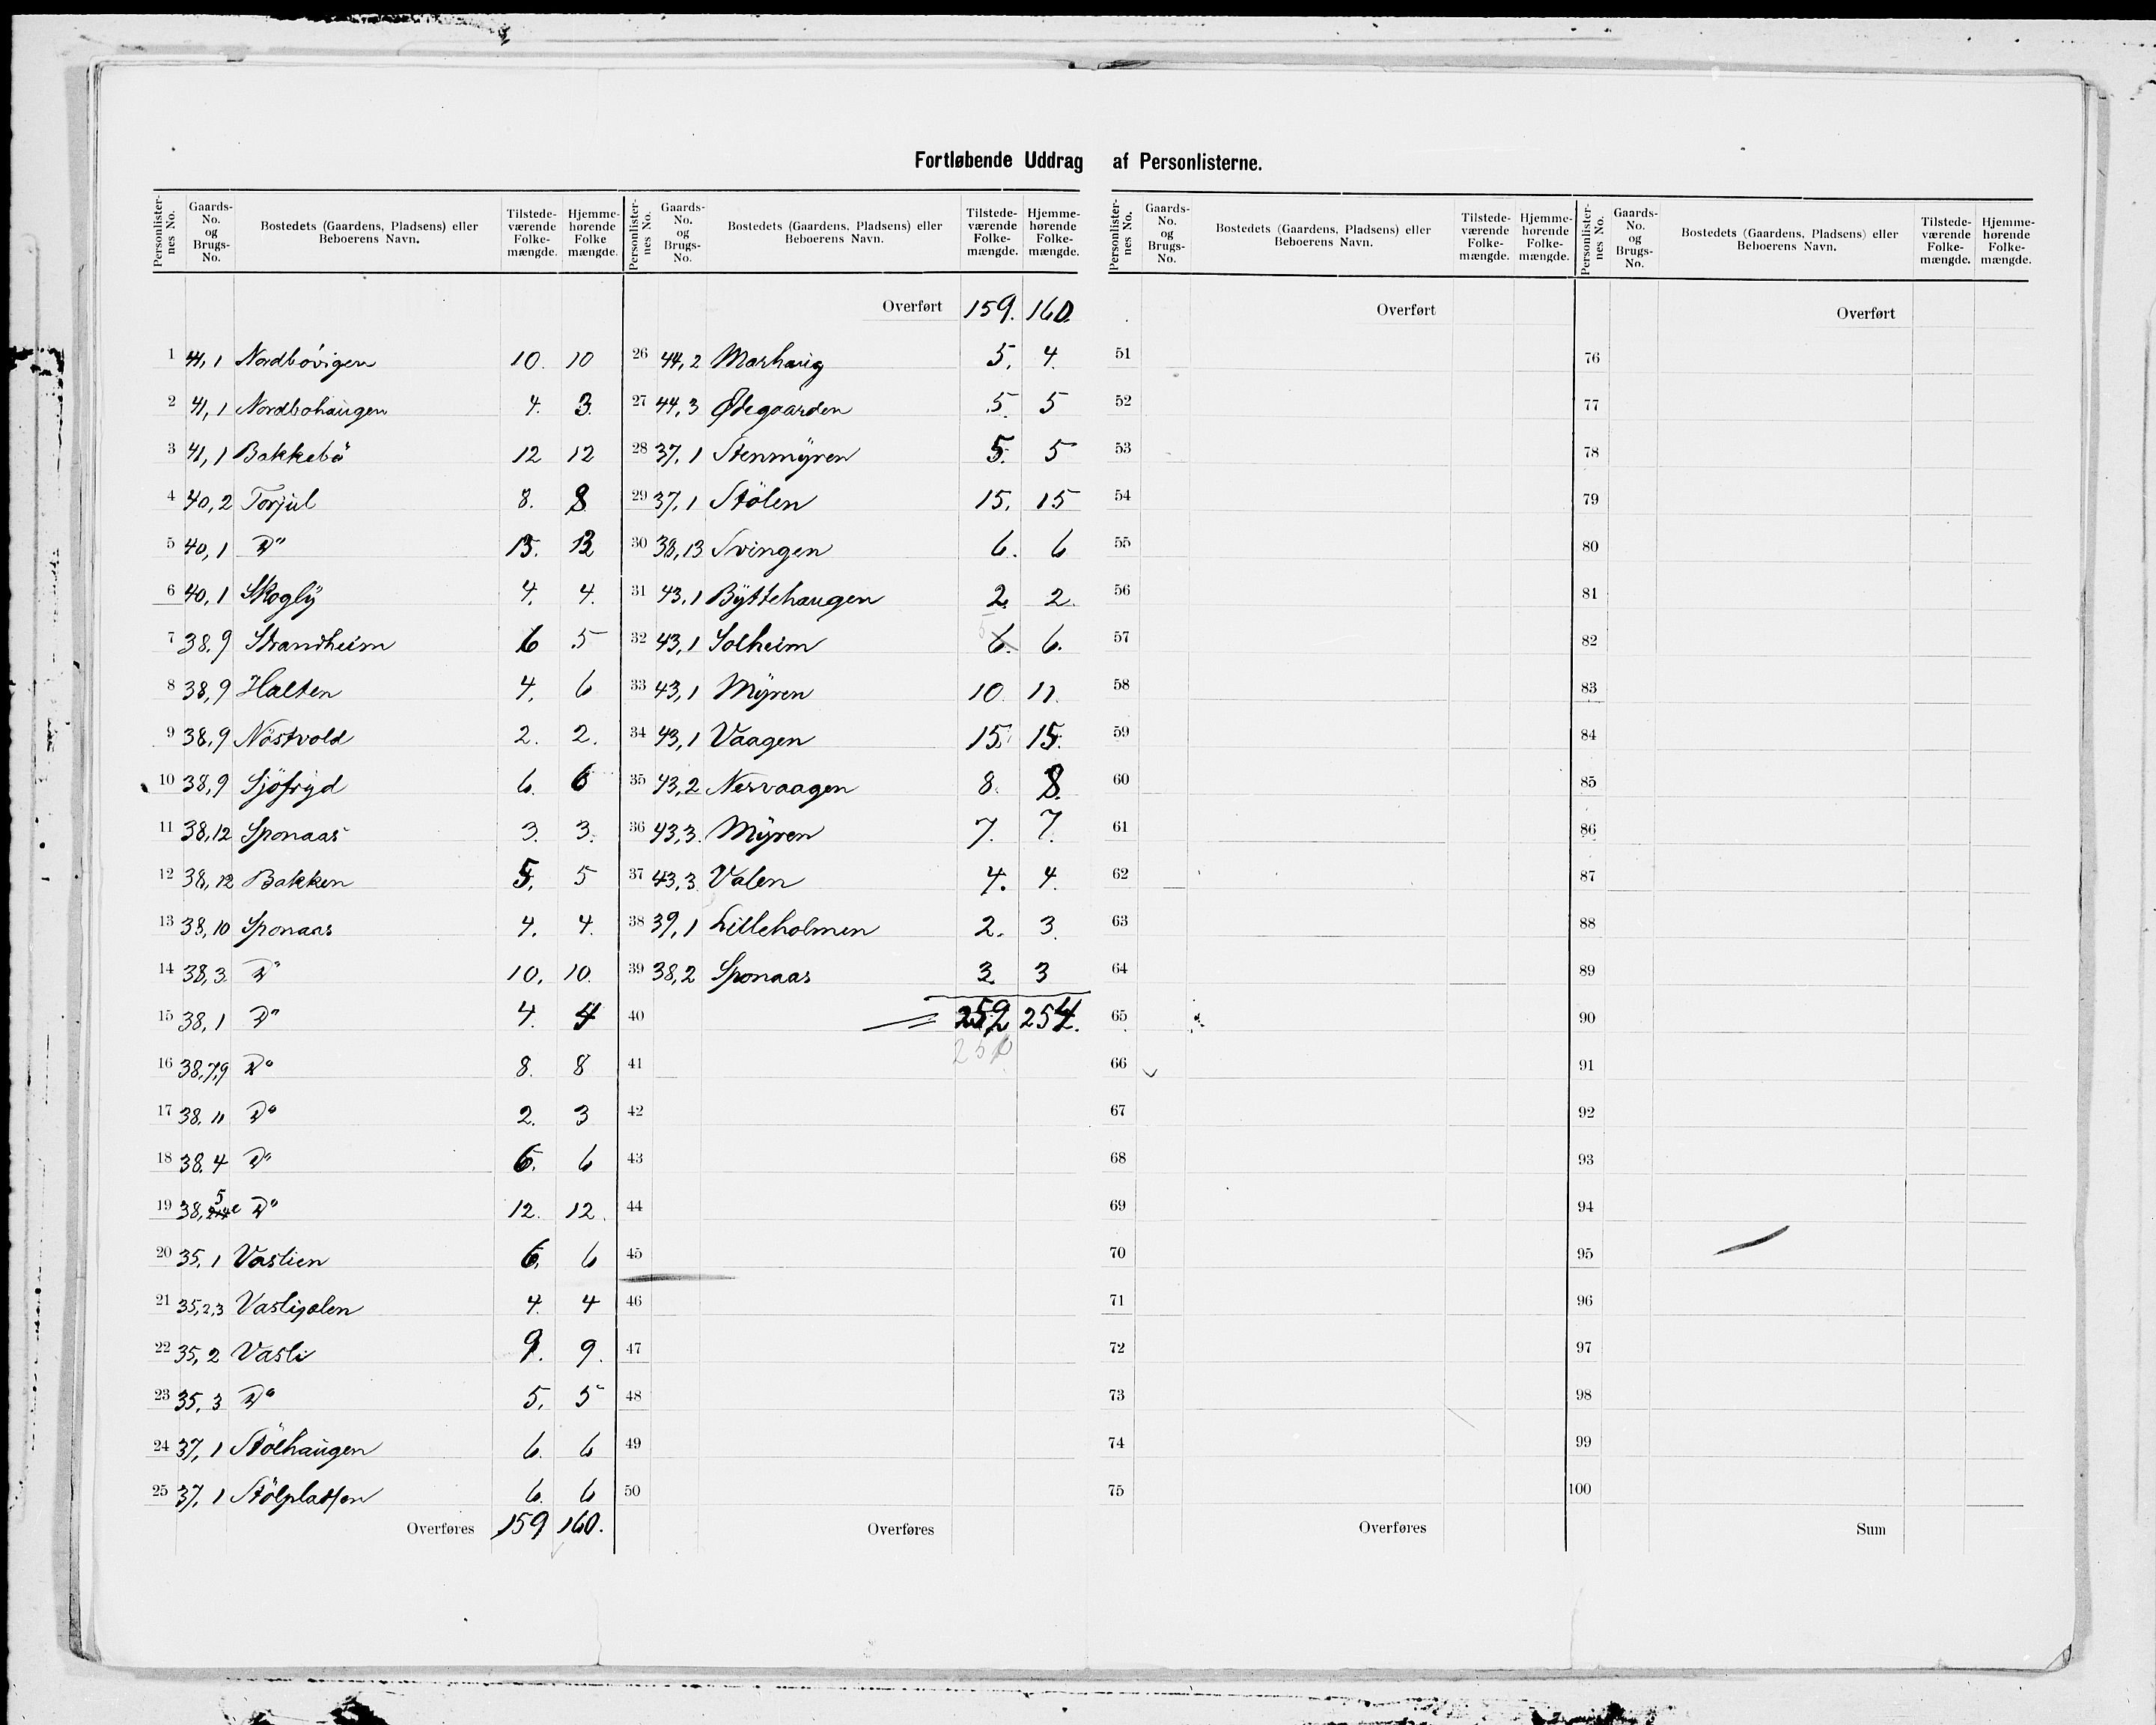 Fortløbende Uddrag af Personlisterne.
Personlisternes No. Gaards-No. og Brugs-No. Bostedets (Gaardens, Pladsens) eller Beboerens Navn. Tilstedeværende Folkemængde. Hjemmehørende Folkemængde.
1 41,1 Nordbövigen 10. 10
2 41,1 Nordbohaugen 4. 3.
3 41,1 Bakkebö 12 12
4 40,2 Torjul 8. 8
5 40,1 Do 13. 13
6 40,1 Skogly 4. 4.
7 38.9 Strandheim 6 5
8 38,9 Halten 4. 6
9 38,9 Nöstvold 2. 2.
10 38,9 Sjöfryd 6. 6
11 38,12 Sponaas 3. 3.
12 38,12 Bakken 5. 5
13 38,10 Sponaas 4. 4.
14 38,3. Do 10. 10.
15 38,1 Do 4. 4
16 38,7,9 Do 8. 8
17 38.11 Do 2. 3
18 38.4 Do 6. 6
19 38,5 Do 12. 12.
20 35.1 Vaslien 6. 6
21 35,2,3 Vasligolen 4. 4
22 35,2 Vasli 9. 9.
23 35,3 Do 5. 5
24 37,1 Stölhaugen 6. 6
25 37,1 Stölpladsen 6. 6
Overføres 159 160.
Personlisternes No. Gaards-No. og Brugs-No. Bostedets (Gaardens, Pladsens) eller Beboerens Navn. Tilstedeværende Folkemængde. Hjemmehørende Folkemængde.
Overført 159. 160.
26 44,2 Marhaug 5. 4.
27 44,3 Ødegaarden 5. 5
28 37,1 Stenmyren 5. 5
29 37,1 Stölen 15. 15
30 38,13 Svingen 6. 6
31 43,1 Byttehaugen 2. 2.
32 43,1 Solheim 5 6. 6.
33 43,1 Myren 10. 11.
34 43,1 Vaagen 15. 15.
35 43,2 Nervaagen 8. 8.
36 43,3. Myren 7. 7.
37 43,3 Valen 4. 4.
38 39,1 Lilleholmen 2. 3.
39 38,2 Sponaas 3. 3
40 252 254.
41
42
43
44
45
46
47
48
49
50
Overføres
Personlisternes No. Gaards-No. og Brugs-No. Bostedets (Gaardens, Pladsens) eller Beboerens Navn. Tilstedeværende Folkemængde. Hjemmehørende Folkemængde.
Overført
51
52
53
54
55
56
57
58
59
60
61
62
63
64
65
66
67
68
69
70
71
72
73
74
75
Overføres
Personlisternes No. Gaards-No. og Brugs-No. Bostedets (Gaardens, Pladsens) eller Beboerens Navn. Tilstedeværende Folkemængde. Hjemmehørende Folkemængde.
Overført
76
77
78
79
80
81
82
83
84
85
86
87
88
89
90
91
92
93
94
95
96
97
98
99
100
Sum